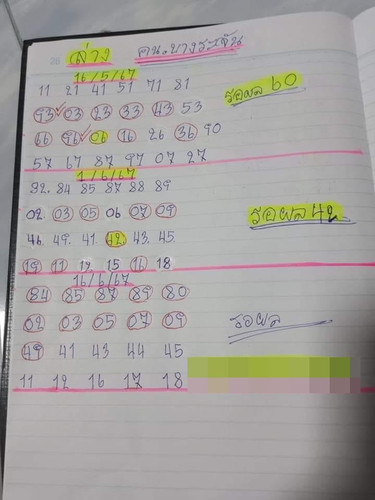 ล่าง คน.บางระจัน
16/5/67
11 21 41 51 71 81
รอผล 60
93 03 23 33 43 53
66 96 06 16 26 36 90
57 67 87 97 07 27
1/6/67
82. 84 85 87 88 89
02 03 05 06 07 09
รอผล 42
46. 49. 41. 42. 43. 45
19 11 17 15 16 18
16/6/67
84 85 87 89 80
02 03 05 07 09
รอผล
49 41 43 44 45
11 12 16 17 18